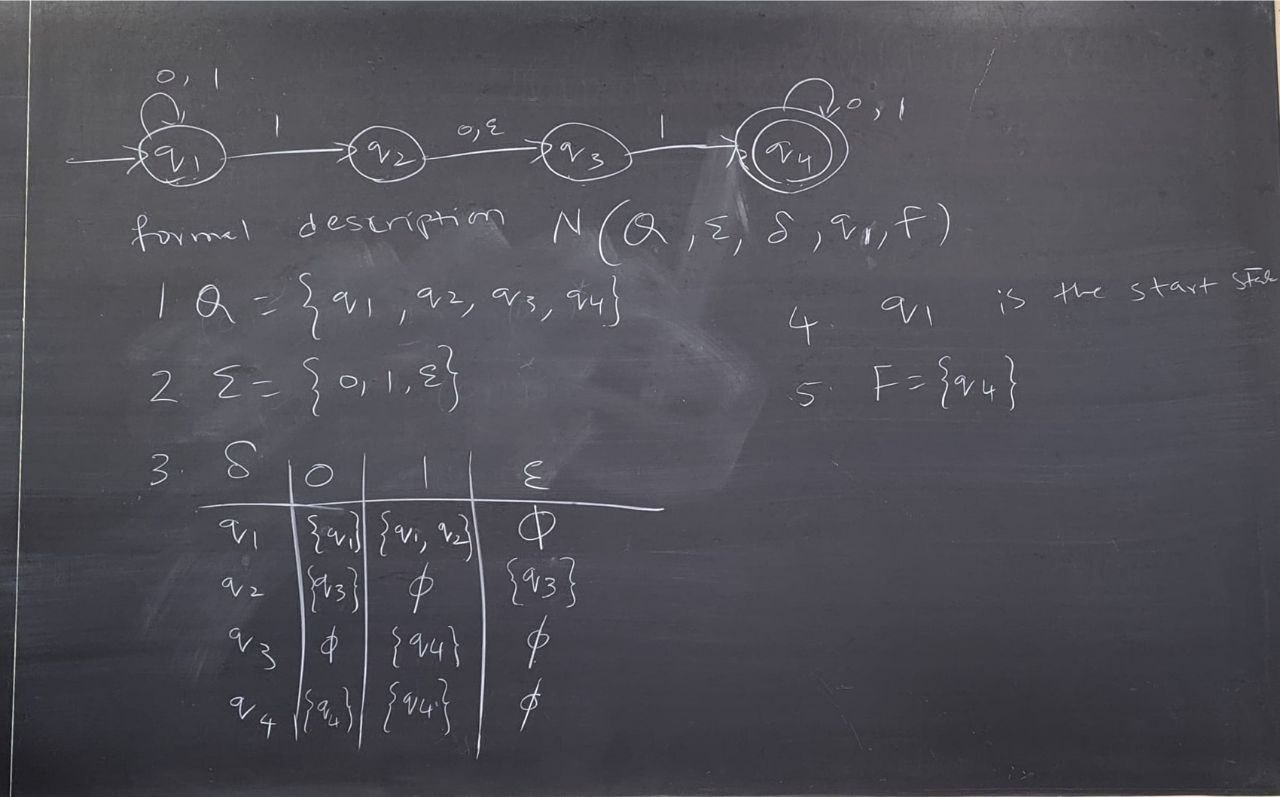 0, 1 1 0,ε 1 0, 1
q1 q2 q3 q4
formal description N(Q, Σ, δ, q1, F)
1 Q = {q1, q2, q3, q4}
2 Σ = {0, 1, ε}
3. δ 0 1 ε
q1 {q1} {q1, q2} ϕ
q2 {q3} ϕ {q3}
q3 ϕ {q4} ϕ
q4 {q4} {q4} ϕ
4. q1 is the start state
5. F = {q4}